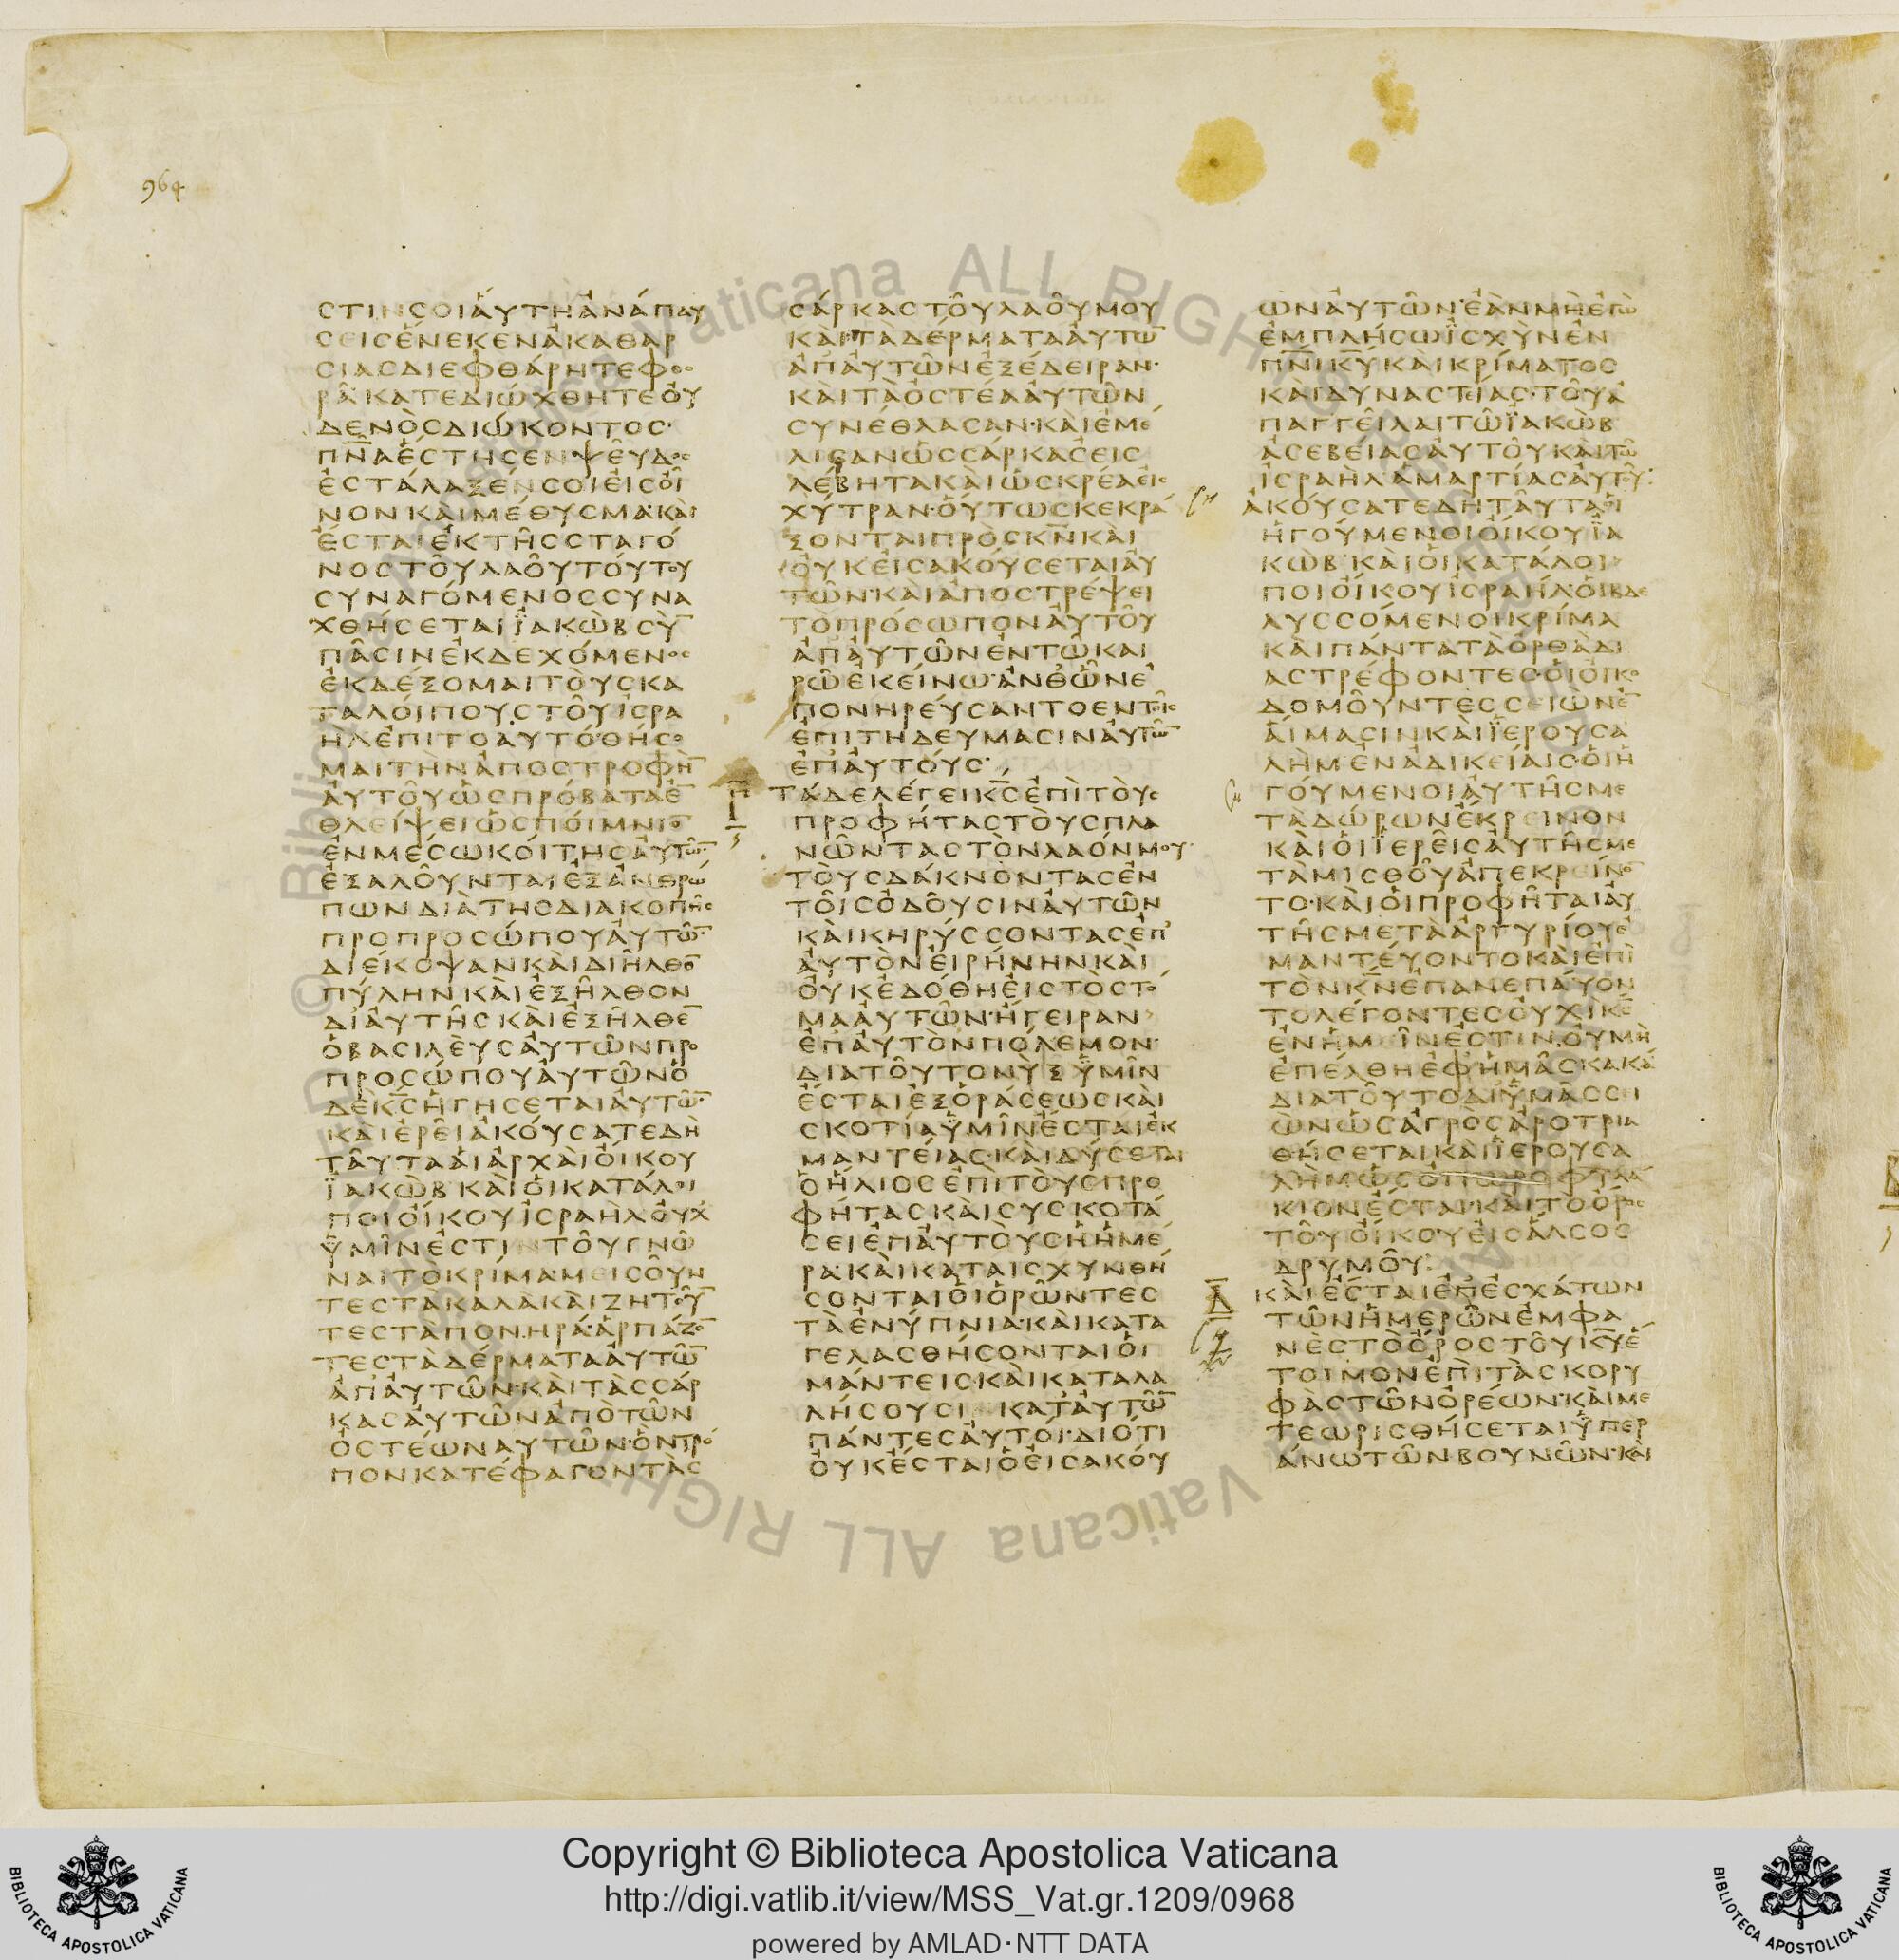 964
ϹΤΙΝϹΟΙΑΥΤΗΑΝΑΠΑΥ
ϹΕΙϹΕΝΕΚΕΝΑΚΑΘΑΡ
ϹΙΑϹΔΙΕΦΘΑΡΗΤΕΦΘΟ
ΡΑΚΑΤΕΔΙΩΧΘΗΤΕΟΥ
ΔΕΝΟϹΔΙΩΚΟΝΤΟϹ·
ΠΝ̅ΑΕϹΤΗϹΕΝΨΕΥΔΟϹ
ΕϹΤΑΛΑΞΕΝϹΟΙΕΙϹΟΙ
ΝΟΝΚΑΙΜΕΘΥϹΜΑ·ΚΑΙ
ΕϹΤΑΙΕΚΤΗϹϹΤΑΓΟ
ΝΟϹΤΟΥΛΑΟΥΤΟΥΤΟΥ
ϹΥΝΑΓΟΜΕΝΟϹϹΥΝΑ
ΧΘΗϹΕΤΑΙΪΑΚΩΒϹΥ̅
ΠΑϹΙΝΕΚΔΕΧΟΜΕΝΟϹ
ΕΚΔΕΞΟΜΑΙΤΟΥϹΚΑ
ΤΑΛΟΙΠΟΥϹΤΟΥΙϹΡΑ
ΗΛΕΠΙΤΟΑΥΤΟΘΗϹΟ
ΜΑΙΤΗΝΑΠΟϹΤΡΟΦΗ̅
ΑΥΤΟΥΩϹΠΡΟΒΑΤΑΕ̅
ΘΛΕΙΨΕΙΩϹΠΟΙΜΝΙΟ̅
ΕΝΜΕϹΩΚΟΙΤΗϹΑΥΤΩ̅·
ΕΞΑΛΟΥΝΤΑΙΕΞΑΝΘΡΩ
ΠΩΝΔΙΑΤΗϹΔΙΑΚΟΠΗϹ
ΠΡΟΠΡΟϹΩΠΟΥΑΥΤΩ̅·
ΔΙΕΚΟΨΑΝΚΑΙΔΙΗΛΘΟ̅
ΠΥΛΗΝΚΑΙΕΞΗΛΘΟΝ
ΔΙΑΥΤΗϹΚΑΙΕΞΗΛΘΕ̅
ΟΒΑϹΙΛΕΥϹΑΥΤΩΝΠΡΟ
ΠΡΟϹΩΠΟΥΑΥΤΩΝΟ
ΔΕΚϹ̅ΗΓΗϹΕΤΑΙΑΥΤΩ̅·
ΚΑΙΕΡΕΙΑΚΟΥϹΑΤΕΔΗ
ΤΑΥΤΑΑΙΑΡΧΑΙΟΙΚΟΥ
ΪΑΚΩΒ·ΚΑΙΟΙΚΑΤΑΛΟΙ
ΠΟΙΟΙΚΟΥΙϹΡΑΗΛΟΥΧ
ΥΜΙΝΕϹΤΙΝΤΟΥΓΝΩ
ΝΑΙΤΟΚΡΙΜΑ·ΜΕΙϹΟΥΝ
ΤΕϹΤΑΚΑΛΑΚΑΙΖΗΤΟΥ̅
ΤΕϹΤΑΠΟΝΗΡΑ·ΑΡΠΑΖΟ̅
ΤΕϹΤΑΔΕΡΜΑΤΑΑΥΤΩ̅
ΑΠΑΥΤΩΝ·ΚΑΙΤΑϹϹΑΡ
ΚΑϹΑΥΤΩΝΑΠΟΤΩΝ
ΟϹΤΕΩΝΑΥΤΩΝ·ΟΝΤΡΟ
ΠΟΝΚΑΤΕΦΑΓΟΝΤΑϹ
ϹΑΡΚΑϹΤΟΥΛΑΟΥΜΟΥ
ΚΑΙΤΑΔΕΡΜΑΤΑΑΥΤΩ̅
ΑΠΑΥΤΩΝΕΞΕΔΕΙΡΑΝ·
ΚΑΙΤΑΟϹΤΕΑΑΥΤΩΝ
ϹΥΝΕΘΛΑϹΑΝ·ΚΑΙΕΜΕ
ΛΙϹΑΝΩϹϹΑΡΚΑϹΕΙϹ
ΛΕΒΗΤΑΚΑΙΩϹΚΡΕΑΕΙϹ
ΧΥΤΡΑΝ·ΟΥΤΩϹΚΕΚΡΑ
ΞΟΝΤΑΙΠΡΟϹΚΝ̅ΚΑΙ
ΟΥΚΕΙϹΑΚΟΥϹΕΤΑΙΑΥ
ΤΩΝ·ΚΑΙΑΠΟϹΤΡΕΨΕΙ
ΤΟΠΡΟϹΩΠΟΝΑΥΤΟΥ
ΑΠΑΥΤΩΝΕΝΤΩΚΑΙ
ΡΩΕΚΕΙΝΩ·ΑΝΘΩΝΕ
ΠΟΝΗΡΕΥϹΑΝΤΟΕΝΤΟΙϹ
ΕΠΙΤΗΔΕΥΜΑϹΙΝΑΥΤΩ̅
ΕΠΑΥΤΟΥϹ·
Η̅
ΤΑΔΕΛΕΓΕΙΚϹ̅ΕΠΙΤΟΥϹ
ΠΡΟΦΗΤΑϹΤΟΥϹΠΛΑ
ΝΩΝΤΑϹΤΟΝΛΑΟΝΜΟΥ·
ΤΟΥϹΔΑΚΝΟΝΤΑϹΕΝ
ΤΟΙϹΟΔΟΥϹΙΝΑΥΤΩΝ
ΚΑΙΚΗΡΥϹϹΟΝΤΑϹΕΠ
ΑΥΤΟΝΕΙΡΗΝΗΝΚΑΙ
ΟΥΚΕΔΟΘΗΕΙϹΤΟϹΤΟ
ΜΑΑΥΤΩΝ·ΗΓΕΙΡΑΝ
ΕΠΑΥΤΟΝΠΟΛΕΜΟΝ·
ΔΙΑΤΟΥΤΟΝΥΞΫΜΙΝ
ΕϹΤΑΙΕΞΟΡΑϹΕΩϹΚΑΙ
ϹΚΟΤΙΑΫΜΙΝΕϹΤΑΙΕΚ
ΜΑΝΤΕΙΑϹ·ΚΑΙΔΥϹΕΤΑΙ
ΟΗΛΙΟϹΕΠΙΤΟΥϹΠΡΟ
ΦΗΤΑϹΚΑΙϹΥϹΚΟΤΑ
ϹΕΙΕΠΑΥΤΟΥϹΗΗΜΕ
ΡΑ·ΚΑΙΚΑΤΑΙϹΧΥΝΘΗ
ϹΟΝΤΑΙΟΙΟΡΩΝΤΕϹ
ΤΑΕΝΥΠΝΙΑ·ΚΑΙΚΑΤΑ
ΓΕΛΑϹΘΗϹΟΝΤΑΙΟΙ
ΜΑΝΤΕΙϹ·ΚΑΙΚΑΤΑΛΑ
ΛΗϹΟΥϹΙ ΚΑΤΑΥΤΩ̅
ΠΑΝΤΕϹΑΥΤΟΙ·ΔΙΟΤΙ
ΟΥΚΕϹΤΑΙΟΕΙϹΑΚΟΥ
ΩΝΑΥΤΩΝ·ΕΑΝΜΗΕΓΩ
ΕΜΠΛΗϹΩΙϹΧΥΝΕΝ
ΠΝ̅ΙΚΥ̅ΚΑΙΚΡΙΜΑΤΟϹ
ΚΑΙΔΥΝΑϹΤΕΙΑϹ·ΤΟΥΑ
ΠΑΓΓΕΙΛΑΙΤΩΪΑΚΩΒ
ΑϹΕΒΕΙΑϹΑΥΤΟΥΚΑΙΤΩ
ΙϹΡΑΗΛΑΜΑΡΤΙΑϹΑΥΤΟΥ:
ΑΚΟΥϹΑΤΕΔΗΤΑΥΤΑΟΙ
ΗΓΟΥΜΕΝΟΙΟΙΚΟΥΪΑ
ΚΩΒ·ΚΑΙΟΙΚΑΤΑΛΟΙ
ΠΟΙΟΙΚΟΥΙϹΡΑΗΛ·ΟΙΒΔΕ
ΛΥϹϹΟΜΕΝΟΙΚΡΙΜΑ
ΚΑΙΠΑΝΤΑΤΑΟΡΘΑΔΙ
ΑϹΤΡΕΦΟΝΤΕϹ·ΟΙΟΙΚΟ
ΔΟΜΟΥΝΤΕϹϹΕΙΩΝΕ̅
ΑΙΜΑϹΙΝΚΑΙΪΕΡΟΥϹΑ
ΛΗΜΕΝΑΔΙΚΕΙΑΙϹ·ΟΙΗ
ΓΟΥΜΕΝΟΙΑΥΤΗϹΜΕ
ΤΑΔΩΡΩΝΕΚΡΕΙΝΟΝ
ΚΑΙΟΙΪΕΡΕΙϹΑΥΤΗϹΜΕ
ΤΑΜΙϹΘΟΥΑΠΕΚΡΕΙΝΟ̅
ΤΟ·ΚΑΙΟΙΠΡΟΦΗΤΑΙΑΥ
ΤΗϹΜΕΤΑΑΡΓΥΡΙΟΥΕ
ΜΑΝΤΕΥΟΝΤΟΚΑΙΕΠΙ
ΤΟΝΚΝ̅ΕΠΑΝΕΠΑΥΟΝ
ΤΟΛΕΓΟΝΤΕϹΟΥΧΙΚϹ̅
ΕΝΗΜΙΝΕϹΤΙΝ·ΟΥΜΗ
ΕΠΕΛΘΗΕΦΗΜΑϹΚΑΚΑ
ΔΙΑΤΟΥΤΟΔΙΫΜΑϹϹΙ
ΩΝΩϹΑΓΡΟϹΑΡΟΤΡΙΑ
ΘΗϹΕΤΑΙΚΑΙΪΕΡΟΥϹΑ
ΛΗΜΩϹΟΠΩΡΟΦΥΛΑ
ΚΙΟΝΕϹΤΑΙ·ΚΑΙΤΟΟΡΟϹ
ΤΟΥΟΙΚΟΥΕΙϹΑΛϹΟϹ
ΔΡΥΜΟΥ:
Λ̅
ΚΑΙΕϹΤΑΙΕΠΕϹΧΑΤΩΝ
ΤΩΝΗΜΕΡΩΝΕΜΦΑ
ΝΕϹΤΟΟΡΟϹΤΟΥΚΥ̅Ε
ΤΟΙΜΟΝΕΠΙΤΑϹΚΟΡΥ
ΦΑϹΤΩΝΟΡΕΩΝ·ΚΑΙΜΕ
ΤΕΩΡΙϹΘΗϹΕΤΑΙΫΠΕΡ
ΑΝΩΤΩΝΒΟΥΝΩΝ·ΚΑΙ
© Biblioteca Apostolica Vaticana ALL RIGHTS RESERVED
Copyright © Biblioteca Apostolica Vaticana
http://digi.vatlib.it/view/MSS_Vat.gr.1209/0968
powered by AMLAD·NTT DATA
BIBLIOTECA APOSTOLICA VATICANA
BIBLIOTECA APOSTOLICA VATICANA